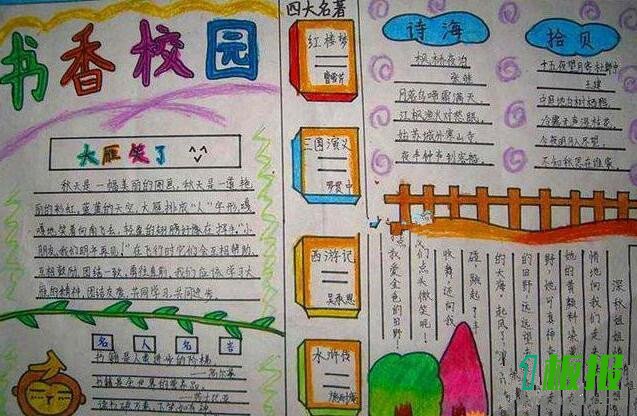 书香校园
大雁笑了
秋天是一幅美丽的图画，秋天是一道艳
丽的彩虹，蓝蓝的天空，大雁排成“人”字形，嘎
嘎地笑着向南飞去，轻盈的翅膀好像在招手：“小
朋友，我们明年再见！”在飞行时它们会互相帮助、
互相鼓励，团结一致，勇往直前。我们应该学习大
雁的精神，团结友爱，共同学习，共同进步。
名人名言
书籍是人类进步的阶梯
高尔基
四大名著
红楼梦
曹雪芹
三国演义
罗贯中
西游记
吴承恩
水浒传
施耐庵
诗海
枫桥夜泊
张继
月落乌啼霜满天，
江枫渔火对愁眠。
姑苏城外寒山寺
夜半钟声到客船
拾贝
十五夜望月
王建
中庭地白树栖鸦
冷露无声湿桂花
今夜月明人尽望
不知秋思在谁家
深秋姐姐
情地向我们走
她的黄颜料染
野，她可真神
的田野，远远望去
的大海，起风了，
碰，跳起了
收舞，还向我
们点头微笑呢！
我爱金色的田野！
板报